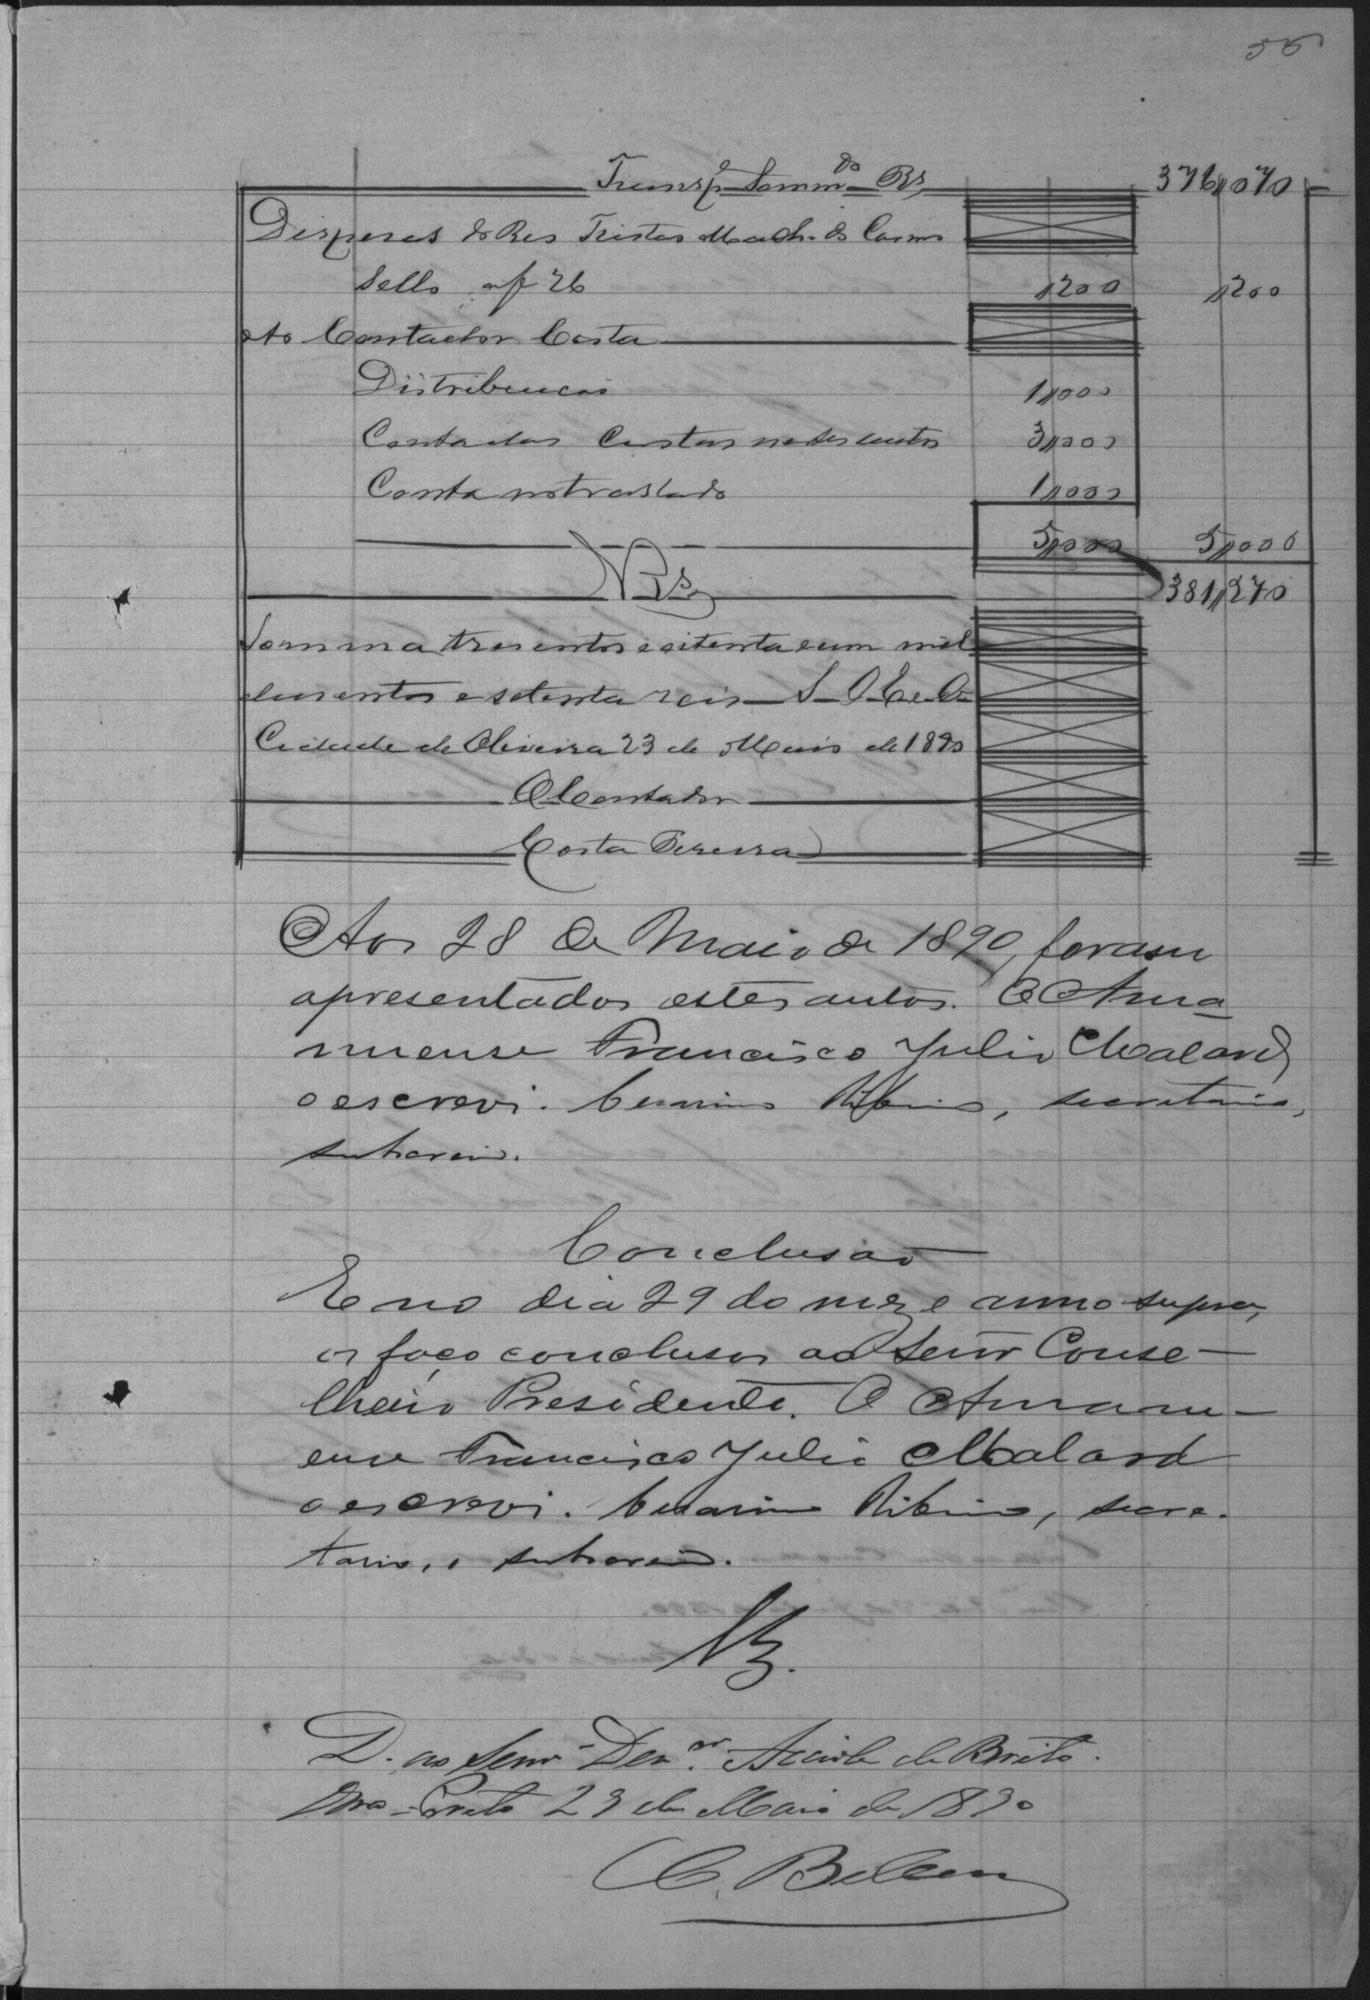 56
Transp.e Somm.do Rs 376,,070
Despesas do Reo Tristão Mach.do de Carmo
Sello a f 26 ,,200 ,,200
Ao Contador Costa
Distribuicao 1,,000
Conta das Custas nestes autos 3,,000
Conta no traslado 1,,000
5,,000 5,,000
Rs 381,,270
Somma tresentos e oitenta e um mil
dusentos e setenta reis — S. O. E. e O.
Cidade de Oliveira 23 de Maio de 1890
O Contador
Costa Pereira
Aos 28 de Maio de 1890, foram
apresentados estes autos. O Ama
nuense Francisco Julio Malard
o escrevi. Ribeiro, secretario,
subscrevi.
Conclusão
E no dia 29 do mez e anno supra,
os faço conclusos ao Senr Conse-
lheiro Presidente. O Amanu-
ense Francisco Julio Malard
o escrevi. Ribeiro, secre-
tario, o subscrevi.
D. ao Senr Des.or Accioli de Brito.
Ouro-Preto 29 de Maio de 1890